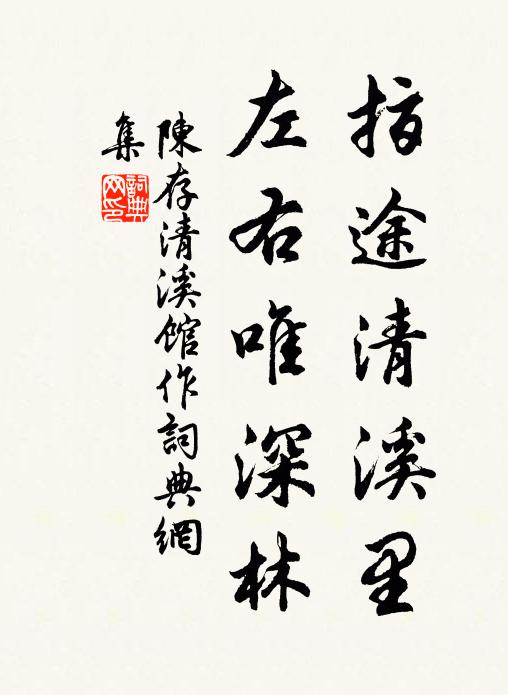 指途清溪里
左右唯深林
陳存清溪館作詞典網
集
詞典
网印